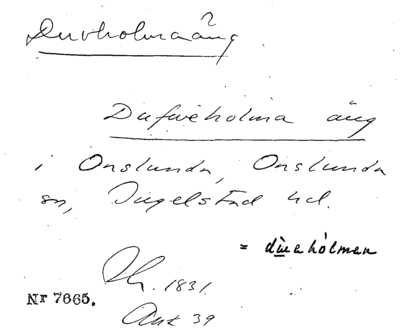 Duvholmaäng
Dufweholma äng
i Onslunda, Onslunda
sn, Ingelstad hd.
= dúwahólman
1831.
Nr 7665.
Akt 39